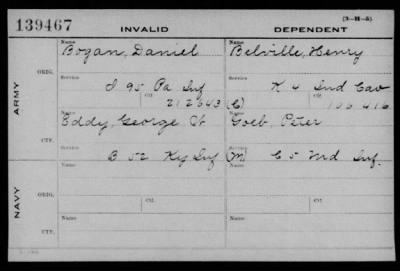 (3-H-5)
139467 INVALID DEPENDENT
Name Name
Bogan, Daniel Belville, Henry
ARMY
ORIG.
Service Service
I 95 Pa Inf K 4 Ind Cav
Ctf. Ctf.
212643 (C) 106 416
Name Name
Eddy, George W Goeb, Peter
CTF.
Service Service
B 52 Ky Inf (M) C 5 Md Inf.
NAVY
Name Name
ORIG.
Service Ctf. Service Ctf.
Name Name
CTF.
Service Service